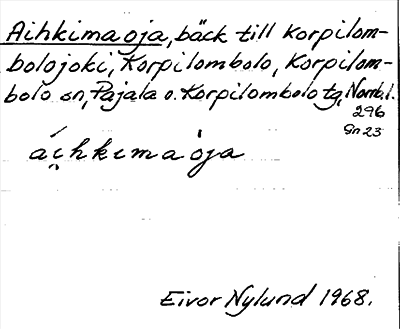 Aihkimaoja, bäck till Korpilom-
bolojoki, Korpilombolo, Korpilom-
bolo sn, Pajala o. Korpilombolo tg, Norrb. l.
296
Gn 23
áihkimaòja
Eivor Nylund 1968.